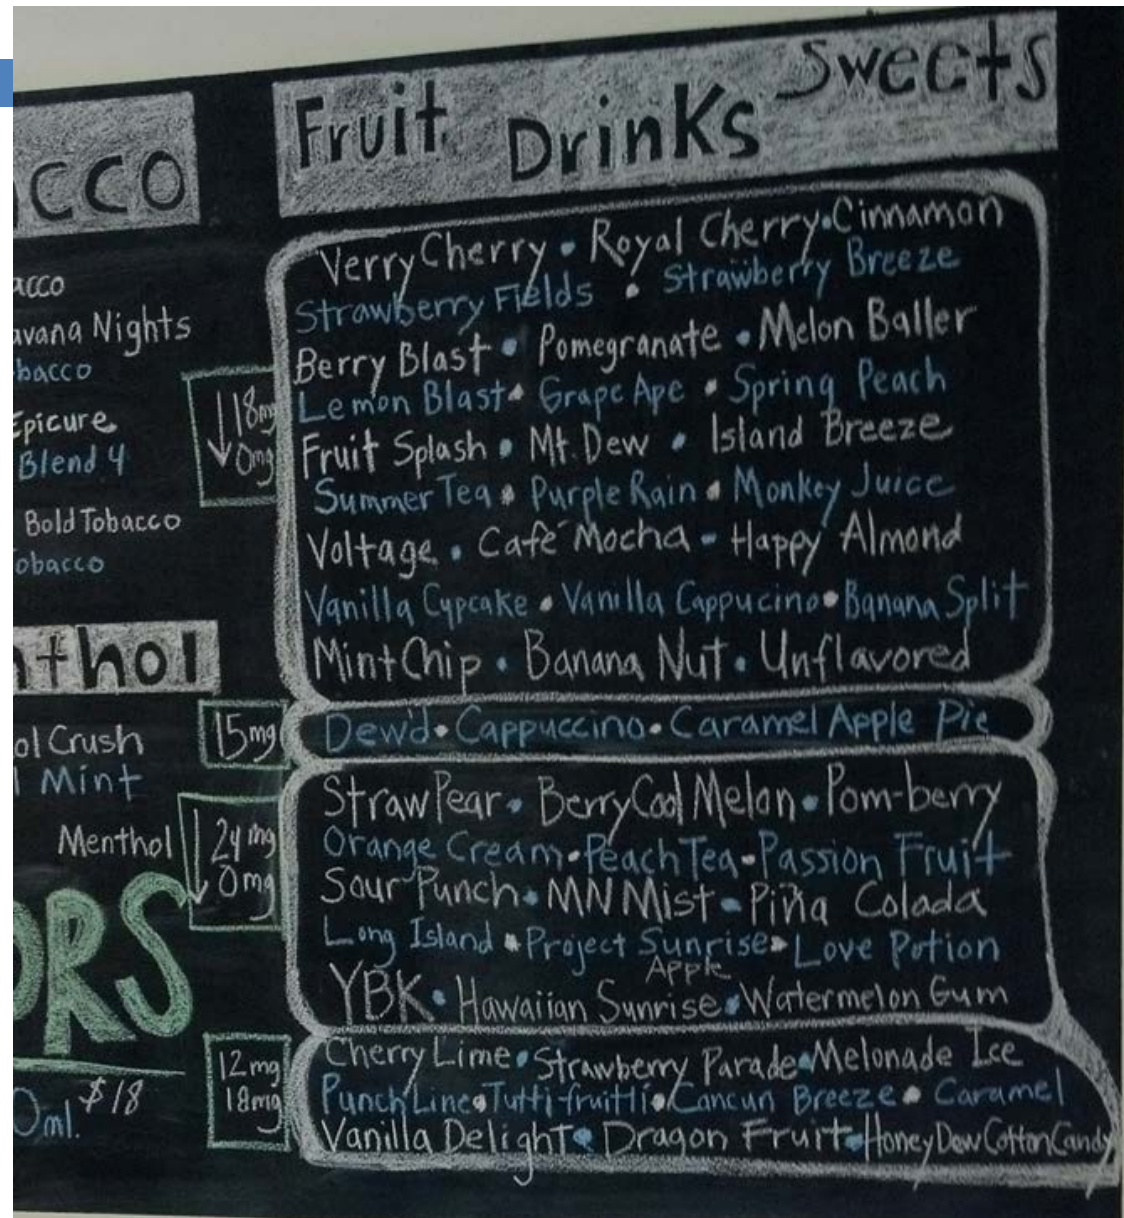 acco
avana Nights
bacco
Epicure
Blend 4
Bold Tobacco
obacco
nthol
ol Crush
l Mint
Menthol
ORS
0ml. $18
Fruit Drinks Sweets
18mg
0mg
Verry Cherry • Royal Cherry • Cinnamon
Strawberry Fields • Strawberry Breeze
Berry Blast • Pomegranate • Melon Baller
Lemon Blast • Grape Ape • Spring Peach
Fruit Splash • Mt. Dew • Island Breeze
Summer Tea • Purple Rain • Monkey Juice
Voltage • Café Mocha • Happy Almond
Vanilla Cypcake • Vanilla Cappucino • Banana Split
Mint Chip • Banana Nut • Unflavored
15mg
Dew'd • Cappuccino • Caramel Apple Pie
24mg
0mg
Straw Pear • Berry Cool Melon • Pom-berry
Orange Cream • Peach Tea • Passion Fruit
Sour Punch • MN Mist • Piña Colada
Long Island • Project Sunrise • Love Potion
YBK • Hawaiian Sunrise • Apple Watermelon Gum
12mg
18mg
Cherry Lime • Strawberry Parade • Melonade Ice
Punch Line • Tutti-fruitti • Cancun Breeze • Caramel
Vanilla Delight • Dragon Fruit • Honey Dew Cotton Candy